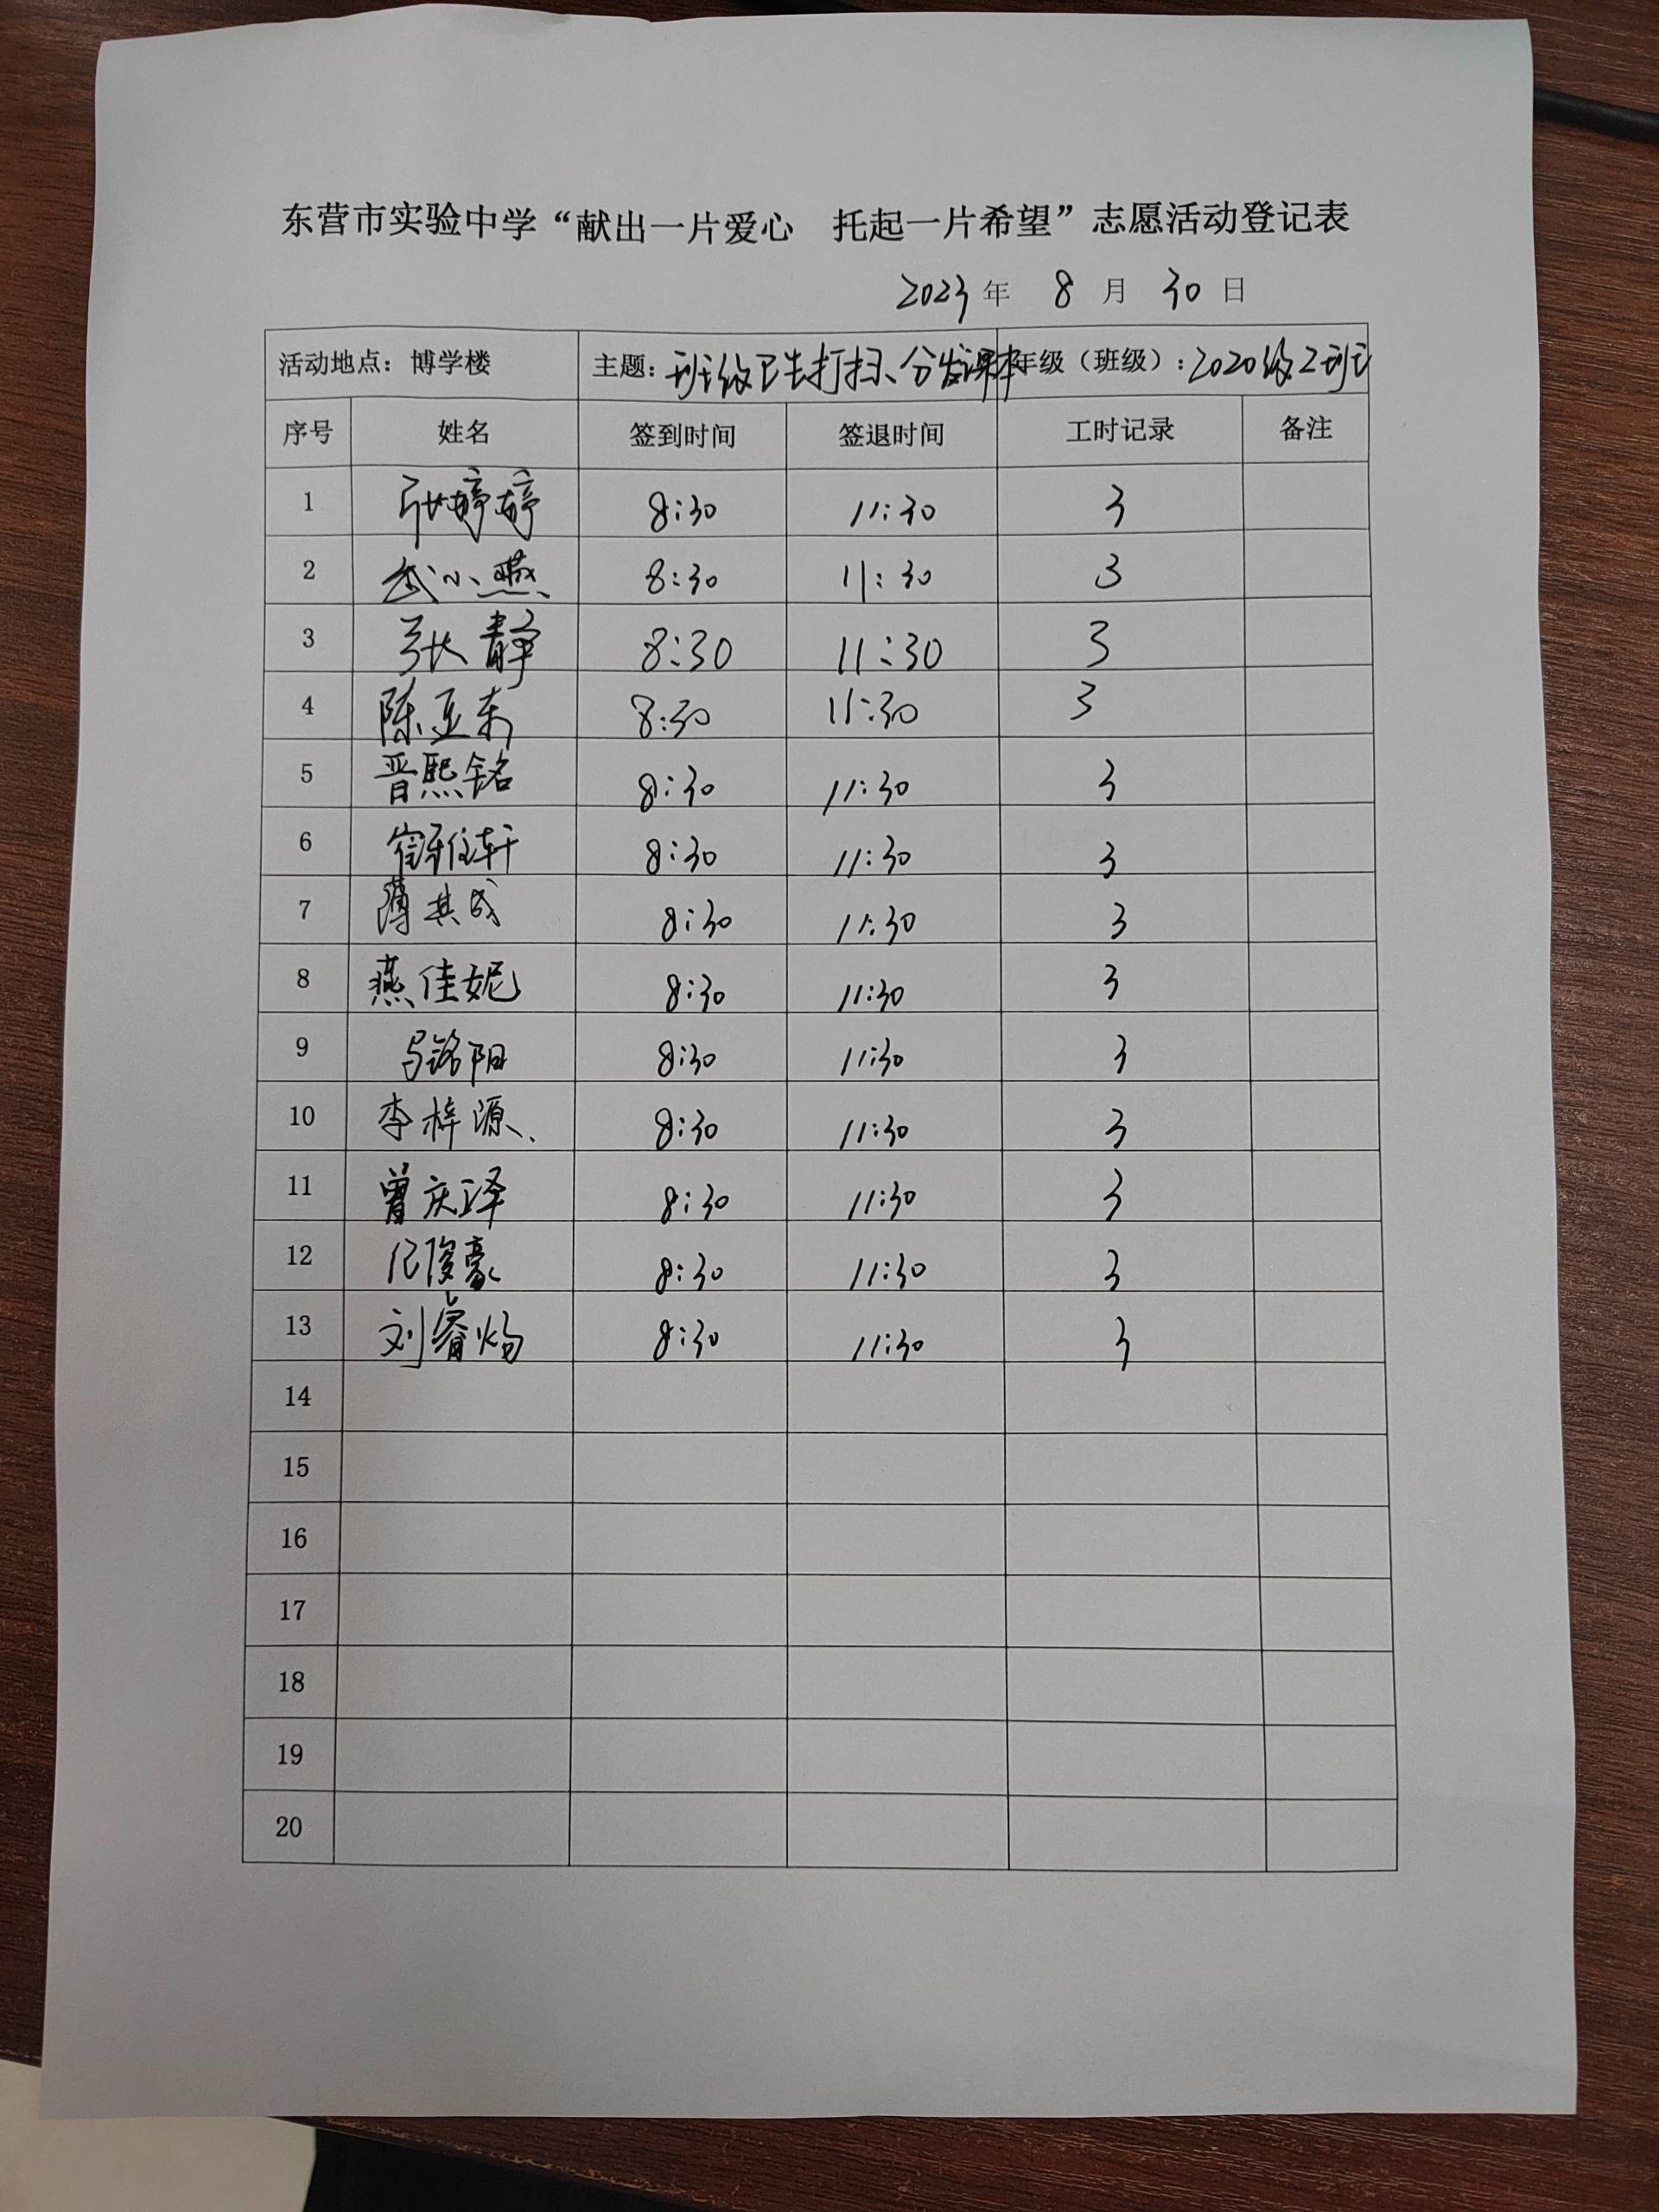 东营市实验中学“献出一片爱心 托起一片希望”志愿活动登记表
2023年 8 月 30 日
活动地点：博学楼 主题：班级卫生打扫、分发课本 年级（班级）：2020级2班
序号 姓名 签到时间 签退时间 工时记录 备注
1 张婷婷 8:30 11:30 3
2 武小燕 8:30 11:30 3
3 张静 8:30 11:30 3
4 陈亚东 8:30 11:30 3
5 晋熙铭 8:30 11:30 3
6 崔雅轩 8:30 11:30 3
7 薄其成 8:30 11:30 3
8 燕佳妮 8:30 11:30 3
9 马铭阳 8:30 11:30 3
10 李梓源 8:30 11:30 3
11 曾庆泽 8:30 11:30 3
12 纪俊豪 8:30 11:30 3
13 刘睿炀 8:30 11:30 3
14
15
16
17
18
19
20